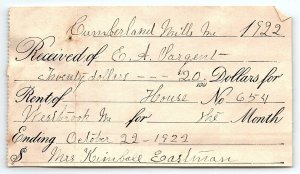 Cumberland Mills Me 1922
Received of E. A. Sargent
Twenty dollars --- $20.00/100 Dollars for
Rent of House No 654
Westbrook Me for the Month
Ending October 22 - 1922
$ Mrs Kimball Eastman